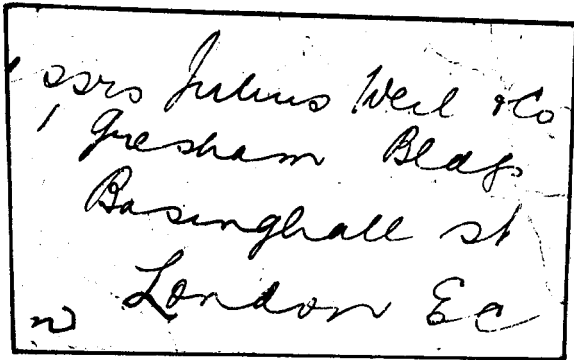 ssrs Julius Weil & Co
1 Gresham Bldgs
Basinghall St
London EC